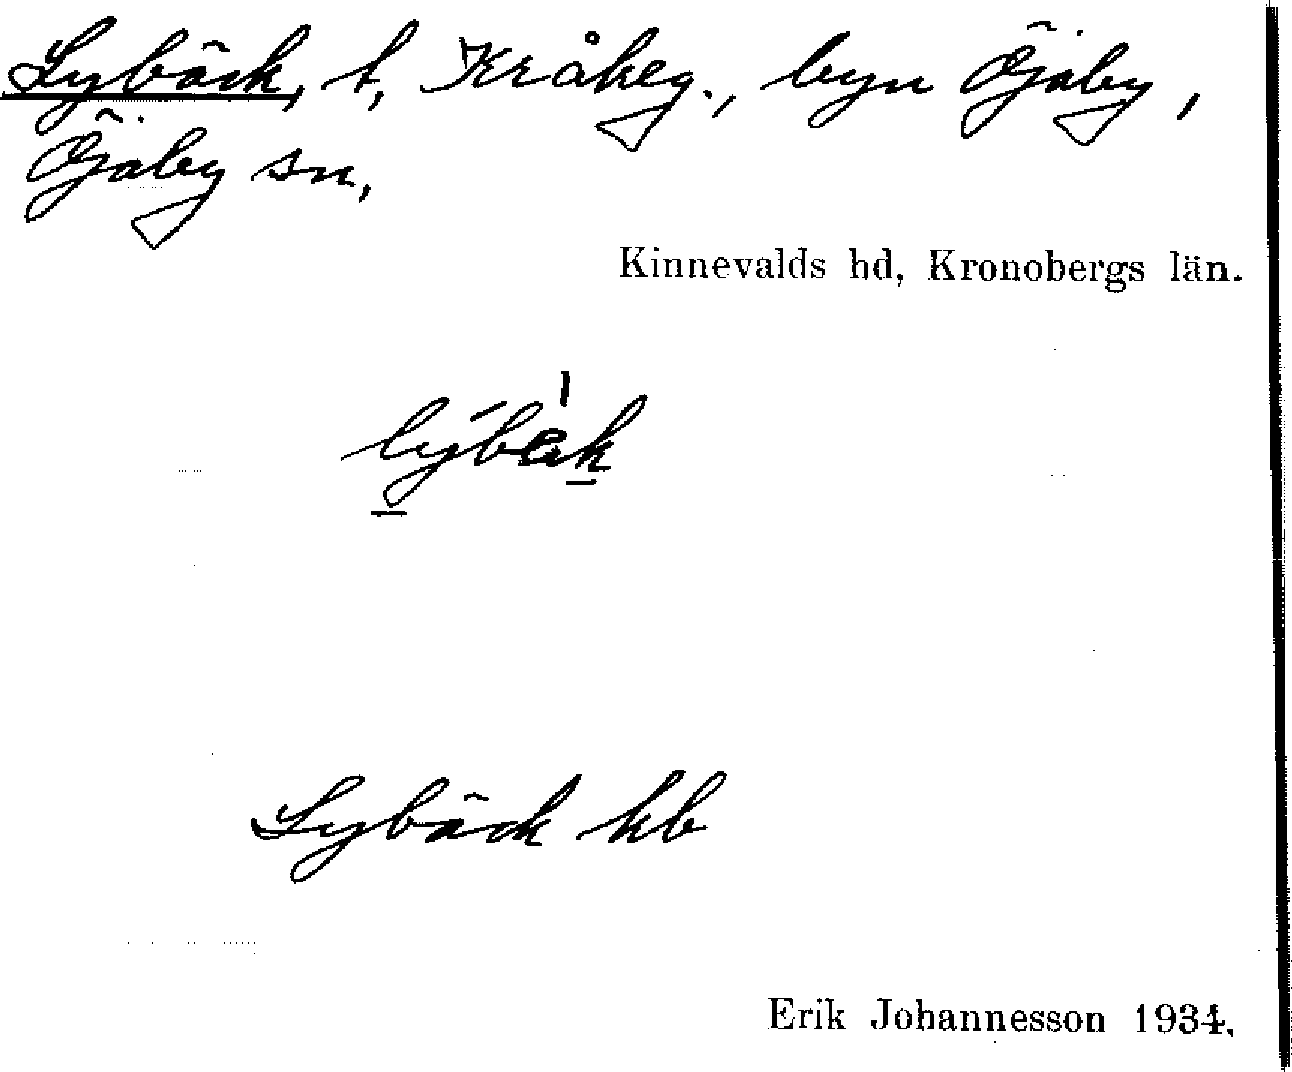 Lybäck, t, Kråkeg., byn Öjaby,
Öjaby sn,
Kinnevalds hd, Kronobergs län.
Lybäck hb
Erik Johannesson 1934.